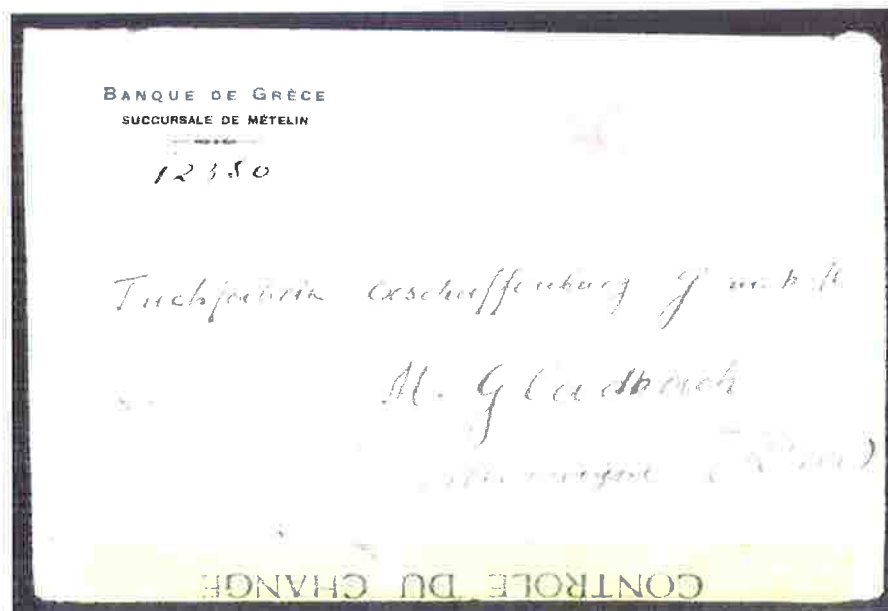 BANQUE DE GRÈCE
SUCCURSALE DE MÉTELIN
12350
Tuchfabrik Aschaffenburg G m b H
M. Gladbach
CONTROLE DU CHANGE